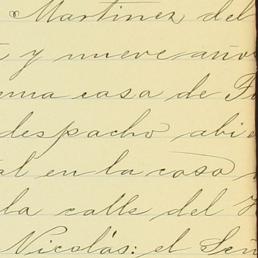 Martinez del
y nueve años
casa de
despacho
en la casa
la calle del
Nicolás: el